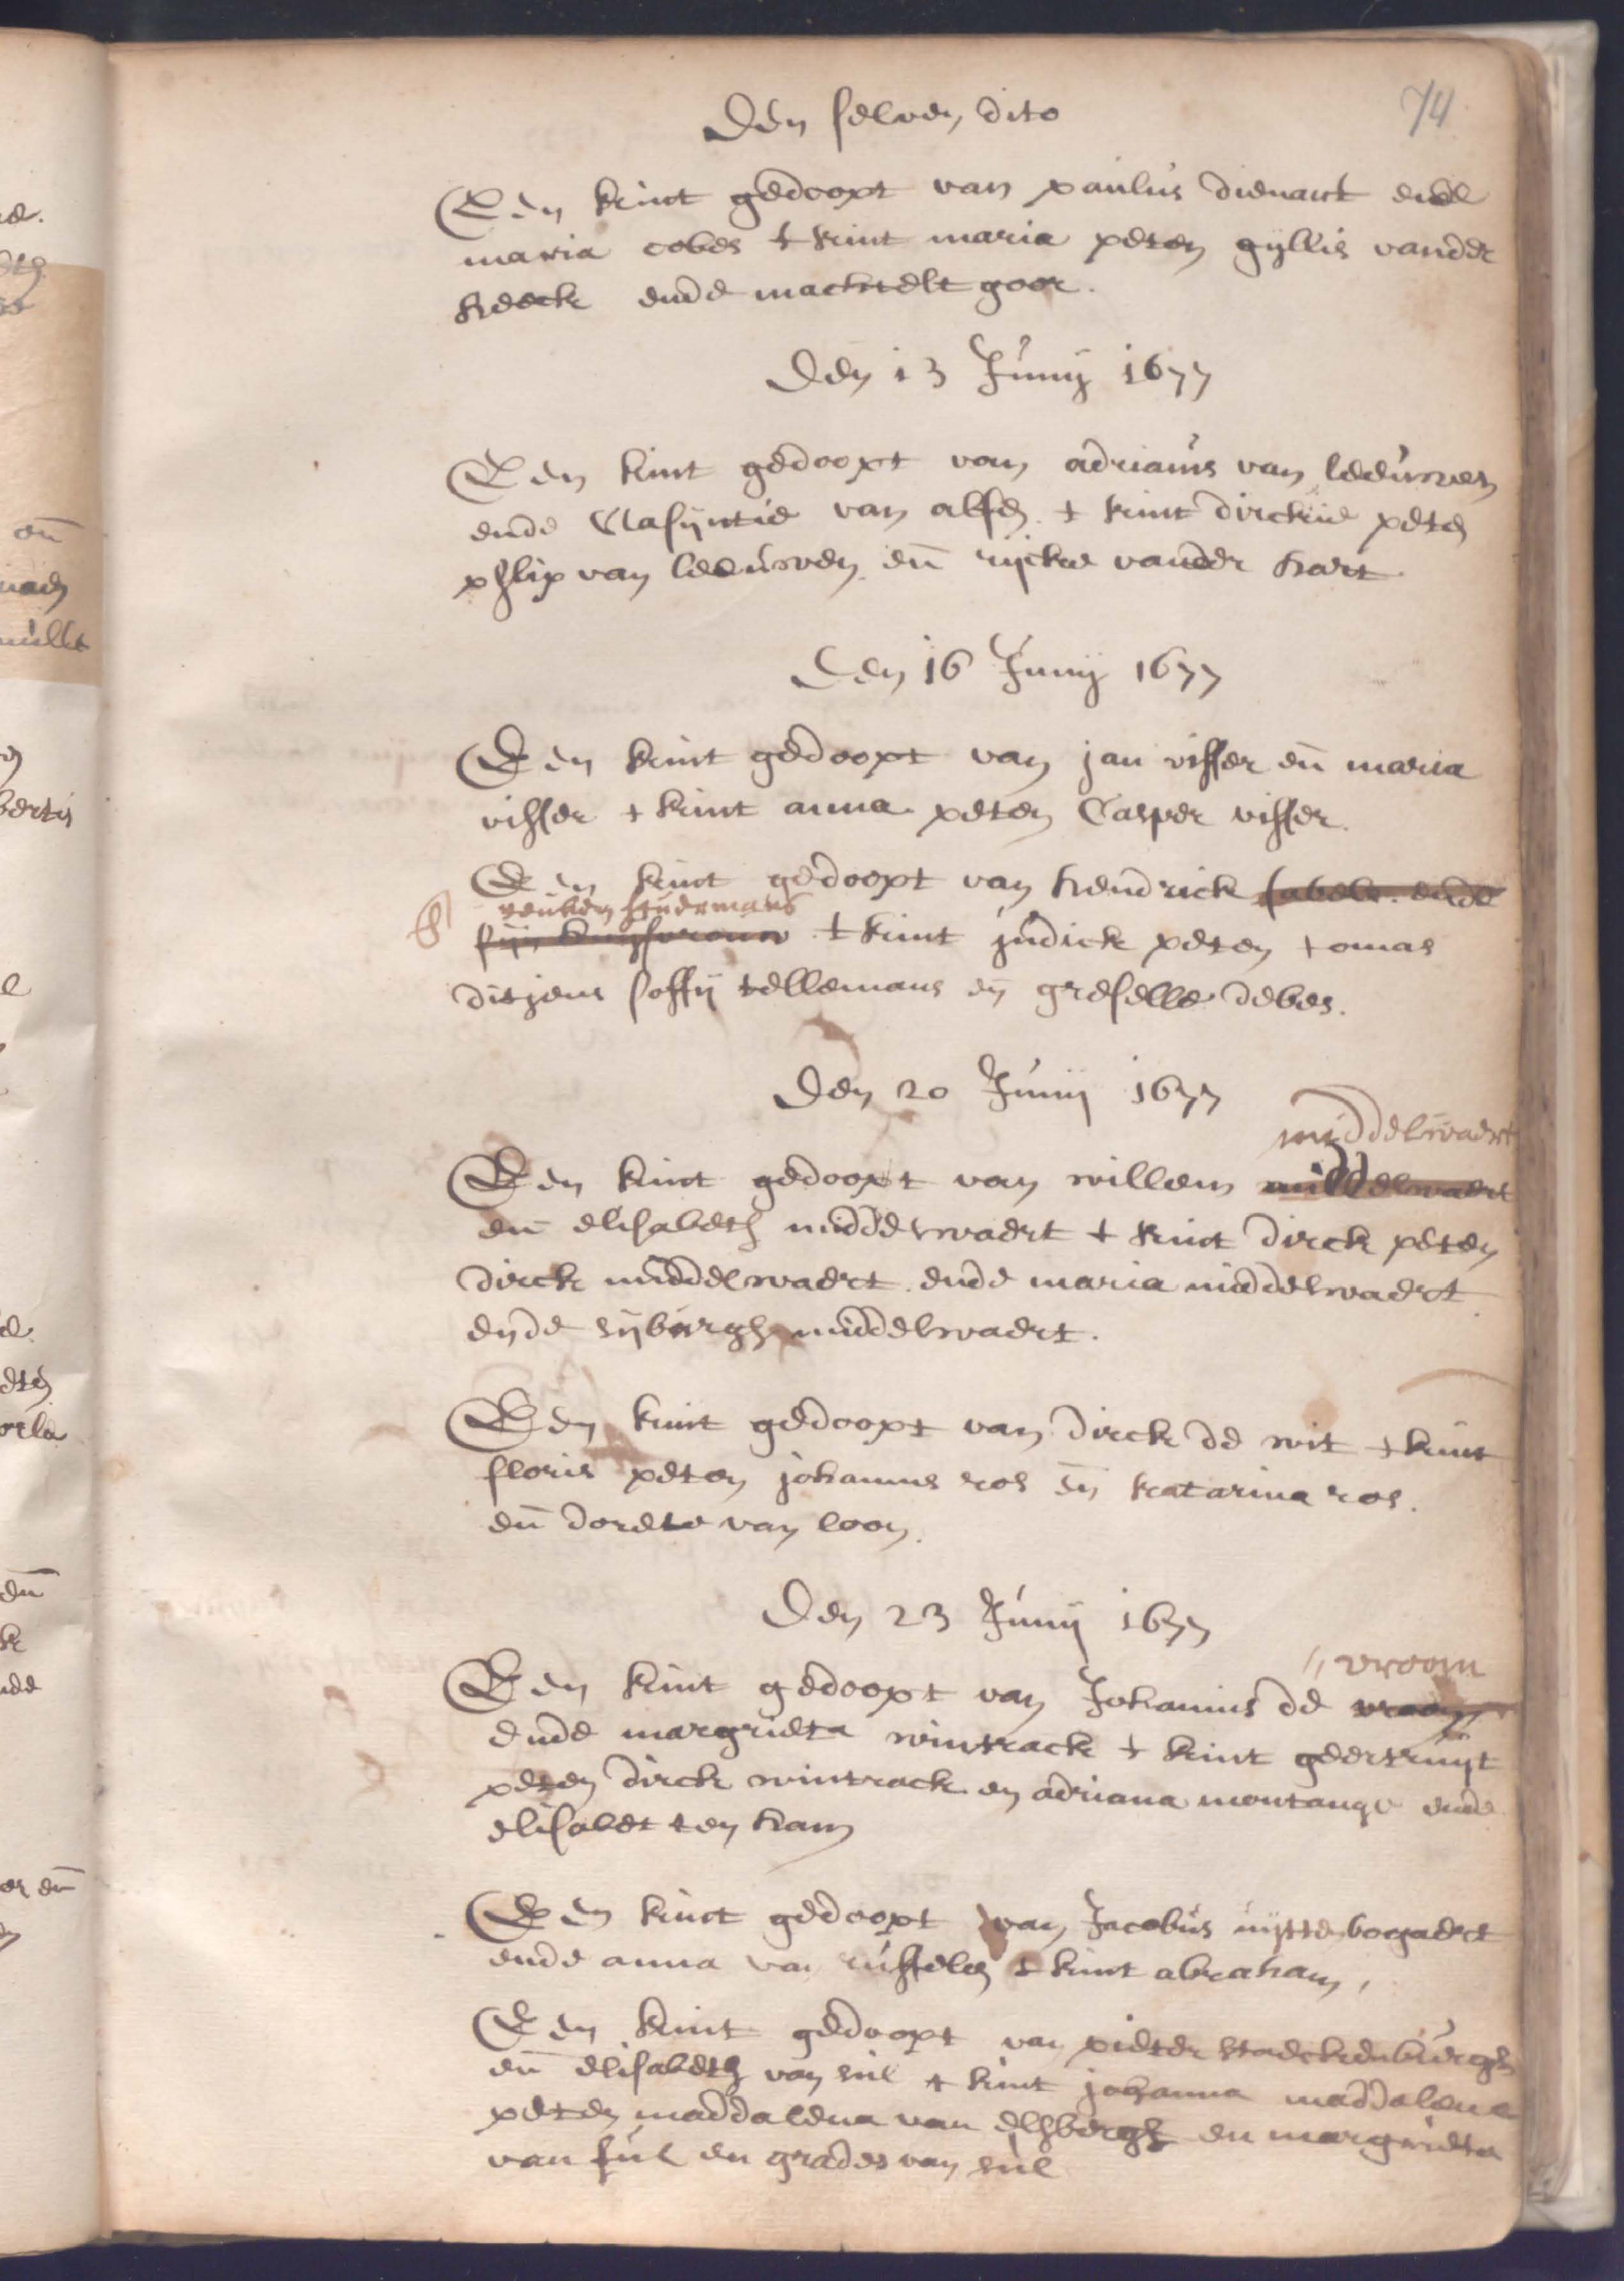 74
Den selven dito
Een kint gedoopt van paulus dienart ende
maria cobes t kint maria peten gyllis vander
heeck ende machtelt goor.
Den 13 Junij 1677
Een kint gedoopt van adrianus van leeuwen
ende Clasijntie van alfen t kint dirckie peten
philip van leeuwen en rijckie vander hart
Den 16 Junij 1677
Een kint gedoopt van jan visser en maria
visser t kint anna peten Casper visser.
Een kint gedoopt van hendrick sabels ende
studemans
sijn huijsvrouw t kint judick peten tomas
ditjens soffij tellemans en greselle debes.
Den 20 Junij 1677
middelwaert
Een kint gedoopt van willem middelwaert
en elisabeth middelwaert t kint dirck peten
dirck middelwaert ende maria middelwaert
ende sijburgh middelwaert.
Een kint gedoopt van dirck de wit t kint
floris peten johannes ros en katarina ros.
en dorete van loon.
Den 23 Junij 1677
vroom
Een kint gedoopt van Johannis de vroom
ende margrieta wintrack t kint geertruijt
peten dirck wintrack en adriana montange ende
elisabet ten ham
Een kint gedoopt van Jacobus uijttebogaert
ende anna van russelen t kint abraham,
Een kint gedoopt van pieter staeckenburgh
en elisabeth van sul t kint johanna maddalena
peten maddalena van elsbergh en margrieta
van sul en grades van sul